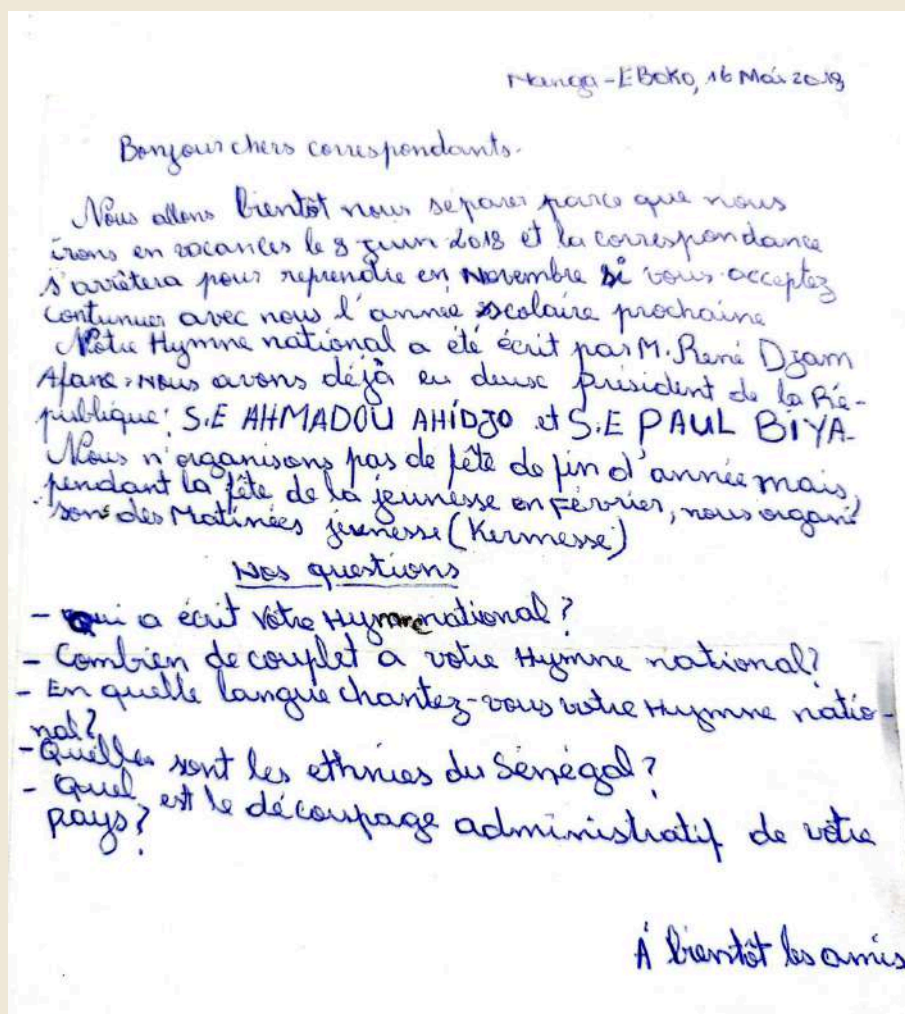 Nanga-EBOKO, 16 Mai 2018
Bonjour chers correspondants.
Nous allons bientôt nous séparer parce que nous
irons en vacances le 8 juin 2018 et la correspondance
s'arrêtera pour reprendre en Novembre si vous acceptez
continuer avec nous l'année scolaire prochaine
Notre Hymne national a été écrit par M. René Dzam
Afane. Nous avons déjà eu deux président de la Ré-
publique: S.E AHMADOU AHIDJO et S.E PAUL BIYA.
Nous n'organisons pas de fête de fin d'année mais,
pendant la fête de la jeunesse en Février, nous organi-
sons des Matinées jeunesse (Kermesse)
Nos questions
- Qui a écrit votre Hymne national?
- Combien de couplet a votre Hymne national?
- En quelle langue chantez-vous votre Hymne natio-
nal?
- Quelles sont les ethnies du Sénégal?
- Quel est le découpage administratif de votre
pays?
À bientôt les amis